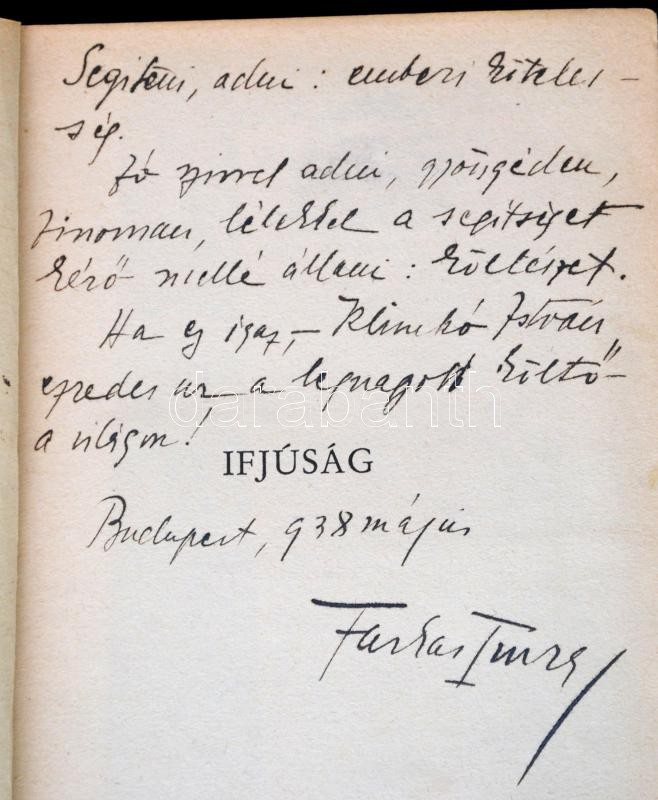 Segiteni, adni: emberi köteles-
ség.
Jó szivvel adni, gyöngéden,
finoman, lélekkel a segitséget
kérő mellé állani: költészet.
Ha ez igaz, – Klimkó István
ezredes úr – a legnagobb költő –
a világon!
darabanth
IFJÚSÁG
Budapest, 938 május
Farkas Imre